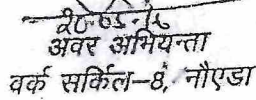 अवर अभियन्ता
वर्क सर्किल-8, नौएडा